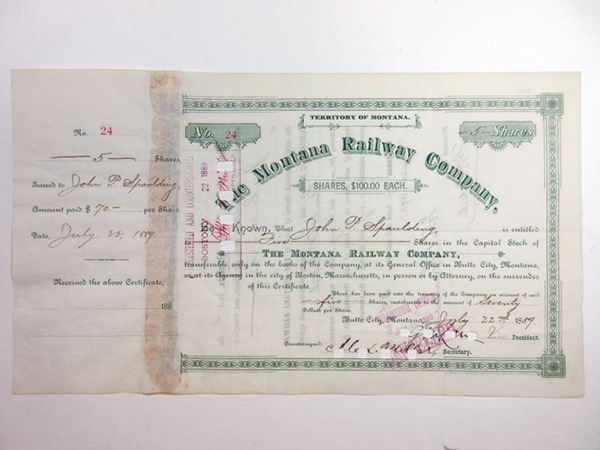 No. 24
5 Shares,
Issued to John P. Spaulding,
Amount paid $ 70- per Share
Date, July 22, 1889
Received the above Certificate,
188
TERRITORY OF MONTANA.
No. 24
5 Shares
The Montana Railway Company,
SHARES, $100.00 EACH.
REGISTERED AND COUNTERSIGNED
BOSTON 22 1889
Be it Known, That John P. Spaulding, is entitled
to Five Shares in the Capital Stock of
THE MONTANA RAILWAY COMPANY,
transferable only on the books of the Company, at its General Office in Butte City, Montana,
or at its Agency in the city of Boston, Massachusetts, in person or by Attorney, on the surrender
of this Certificate.
There has been paid into the treasury of the Company on account of said
five Shares, instalments to the amount of Seventy
Dollars per Share.
Butte City, Montana July 22nd 1889
Vice President.
Countersigned:
Secretary.